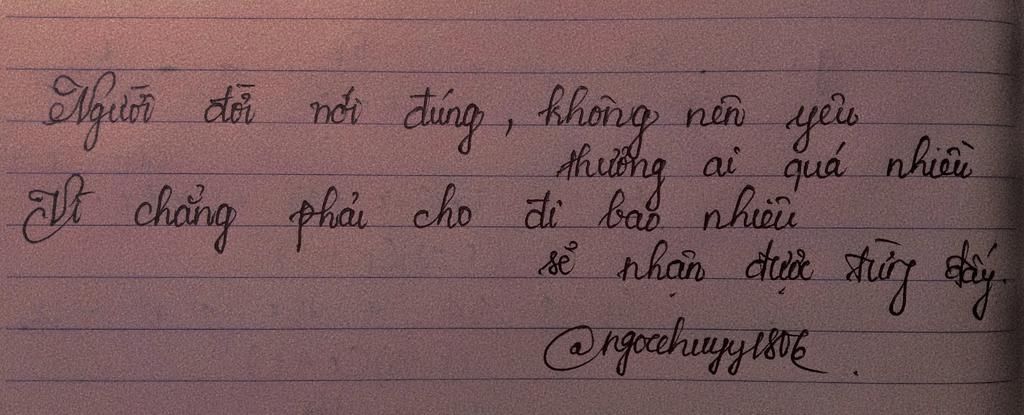 Người đời nói đúng, không nên yêu
thương ai quá nhiều
Vì chẳng phải cho đi bao nhiêu
sẽ nhận được từng đấy.
@ngocchuyy1806